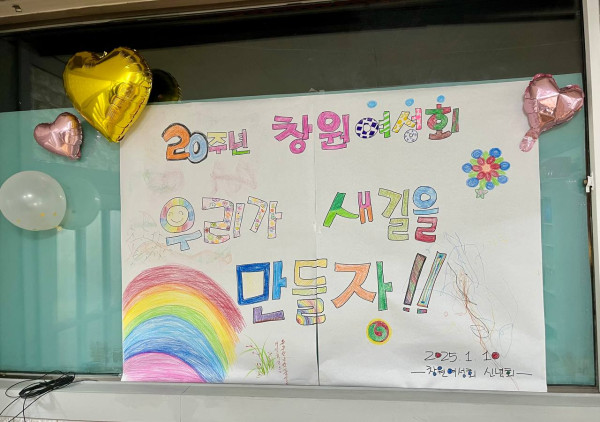 20주년 창원여성회
우리가 새길을
만들자!!
2025 1 10
-창원여성회 신년회-